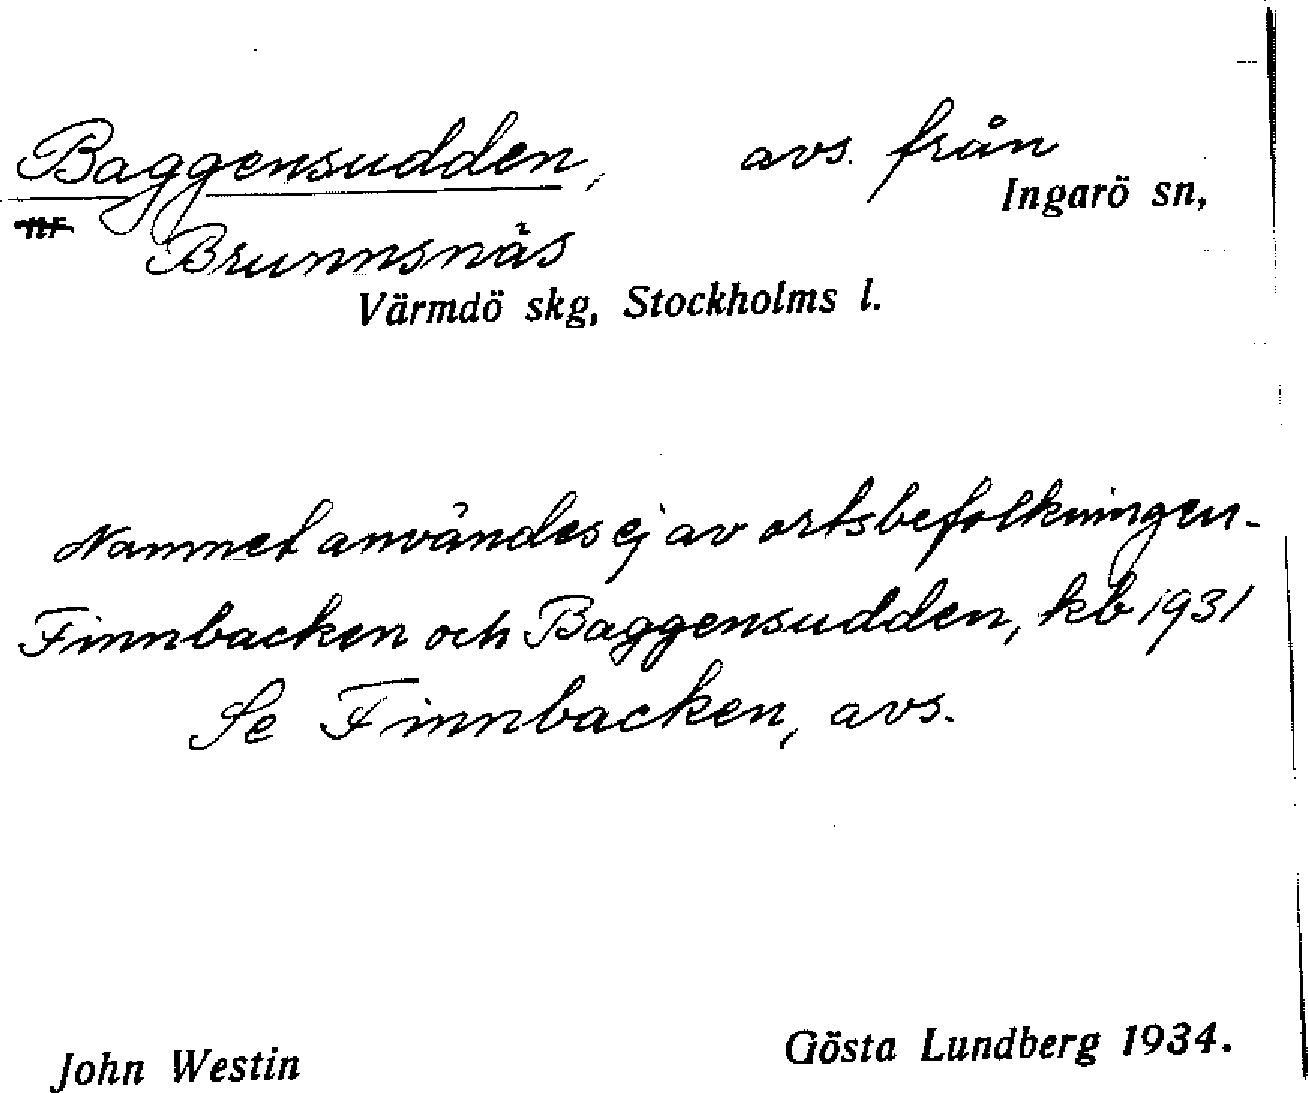 Baggensudden, avs. från
Ingarö sn,
nr
Brunnsnäs
Värmdö skg, Stockholms l.
Namnet användes ej av ortsbefolkningen.
Finnbacken och Baggensudden, kb 1931
Se Finnbacken, avs.
John Westin
Gösta Lundberg 1934.